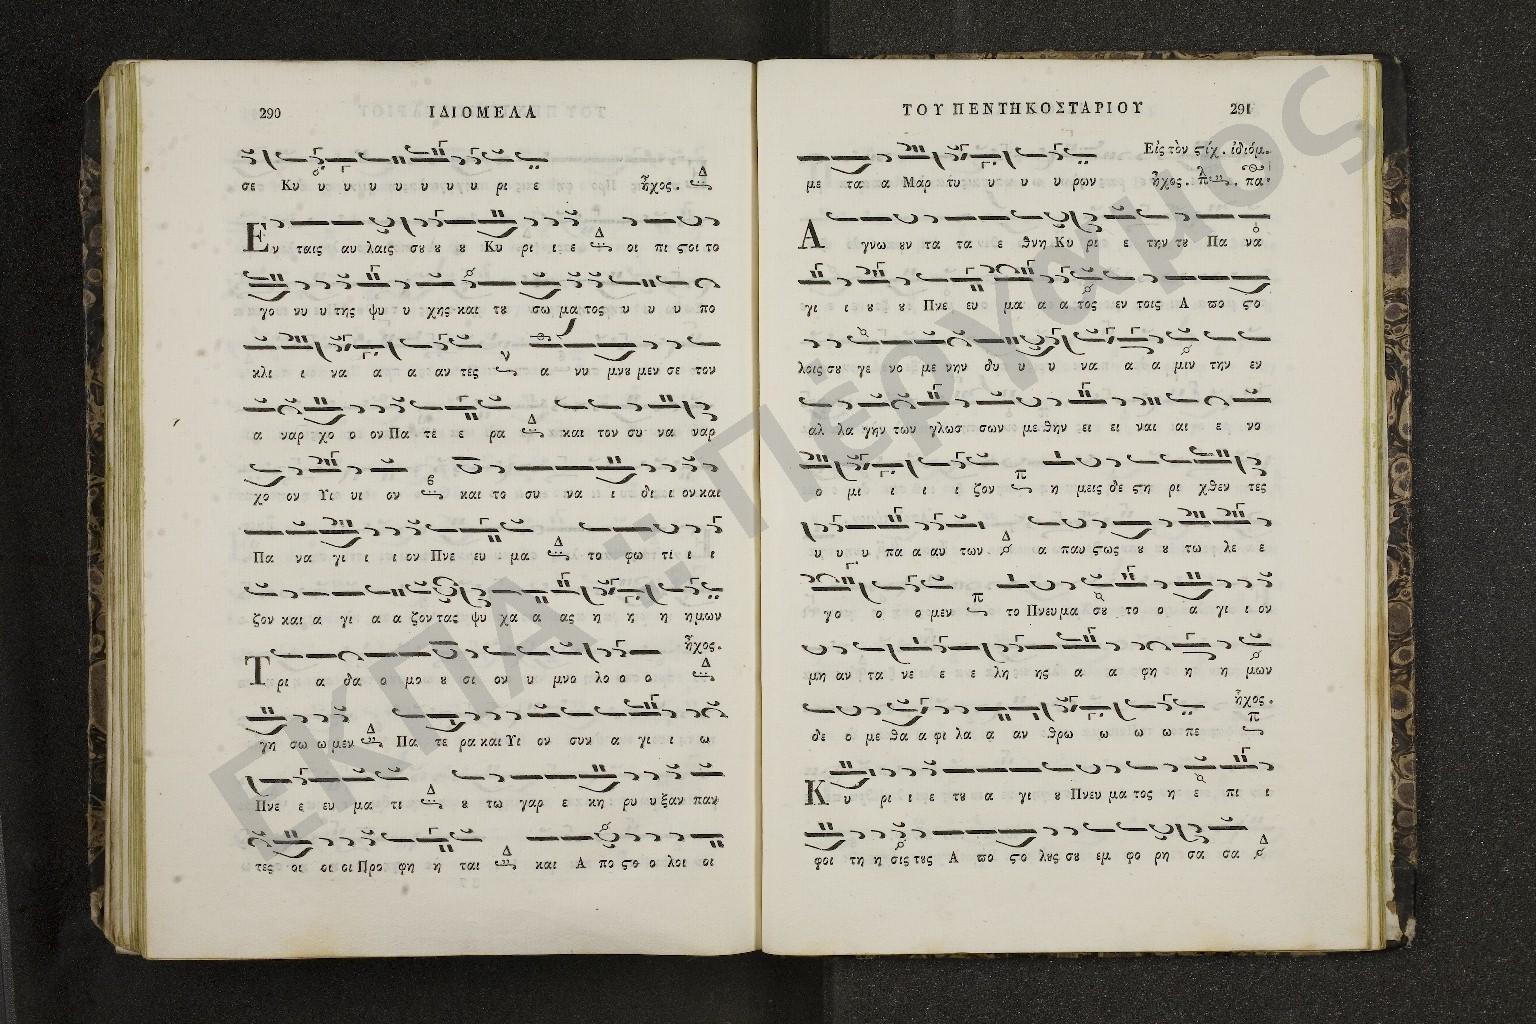 290 ΙΔΙΟΜΕΛΑ
σε Κυ υ υ υ υ υ υ υ ρι ε ἦχος. Δ
Εν ταις αυ λαις σου ου ου Κυ ρι ι ε Δ οι πι στοι το
γο νυ υ της ψυ υ χης και του σω μα τος υ υ υ πο
κλι ι να α α αν τες ν α νυ μνου μεν σε τον
α ναρ χο ο ον Πα τε ε ρα Δ και τον συ να ναρ
χο ον Υι υι ον και το συ να ι δι ι ον και
Πα να γι ι ι ον Πνε ευ μα Δ το φω τι ι ι
ζον και α γι α α ζον τας ψυ χα α ας η η η ημων
Τρι α δα ο μο ου σι ον υ μνο λο ο ο ἦχος. Δ
γη σω ω μεν Δ Πα τε ρα και Υι ον συν α γι ι ω
Πνε ε ευ μα τι Δ ου τω γαρ ε κη ρυ υξαν παν
τες οι οι οι Προ φη η ται Δ και Α πο στο ο λοι οι
ΤΟΥ ΠΕΝΤΗΚΟΣΤΑΡΙΟΥ 291
με τα α Μαρ τυ υ υ υ ρων Εἰς τὸν στίχ. ἰδιόμ.
ἦχος. πα
Α γνω ουν τα τα ε θνη Κυ ρι ε την του Πα να
γι ι ου ου Πνε ευ μα α α τος εν τοις Α πο στο
λοις σου γε νο με νην δυ υ υ να α α μιν την εν
αλ λα γην των γλωσ σων με θην ει ει ναι αι ε νο
ο μι ι ι ι ζον π η μεις δε στη ρι χθεν τες
υ υ υ πα α αυ των Δ α παυ στως ου ου τω λε ε
γο ο ο μεν π το Πνευμα σου το ο α γι ι ον
μη αν τα νε ε ε λη ης α α φη η η μων
δε ο με θα α φι λα α αν θρω ω ω ω πε ἦχος. π
Κυ ρι ι ε του α γι ου Πνευ μα τος η ε πι ι
φοι τη η σις τους Α πο στο λους σου εμ φο ρη σα σα Δ
ΕΚΠΑ :: Πέργαμος